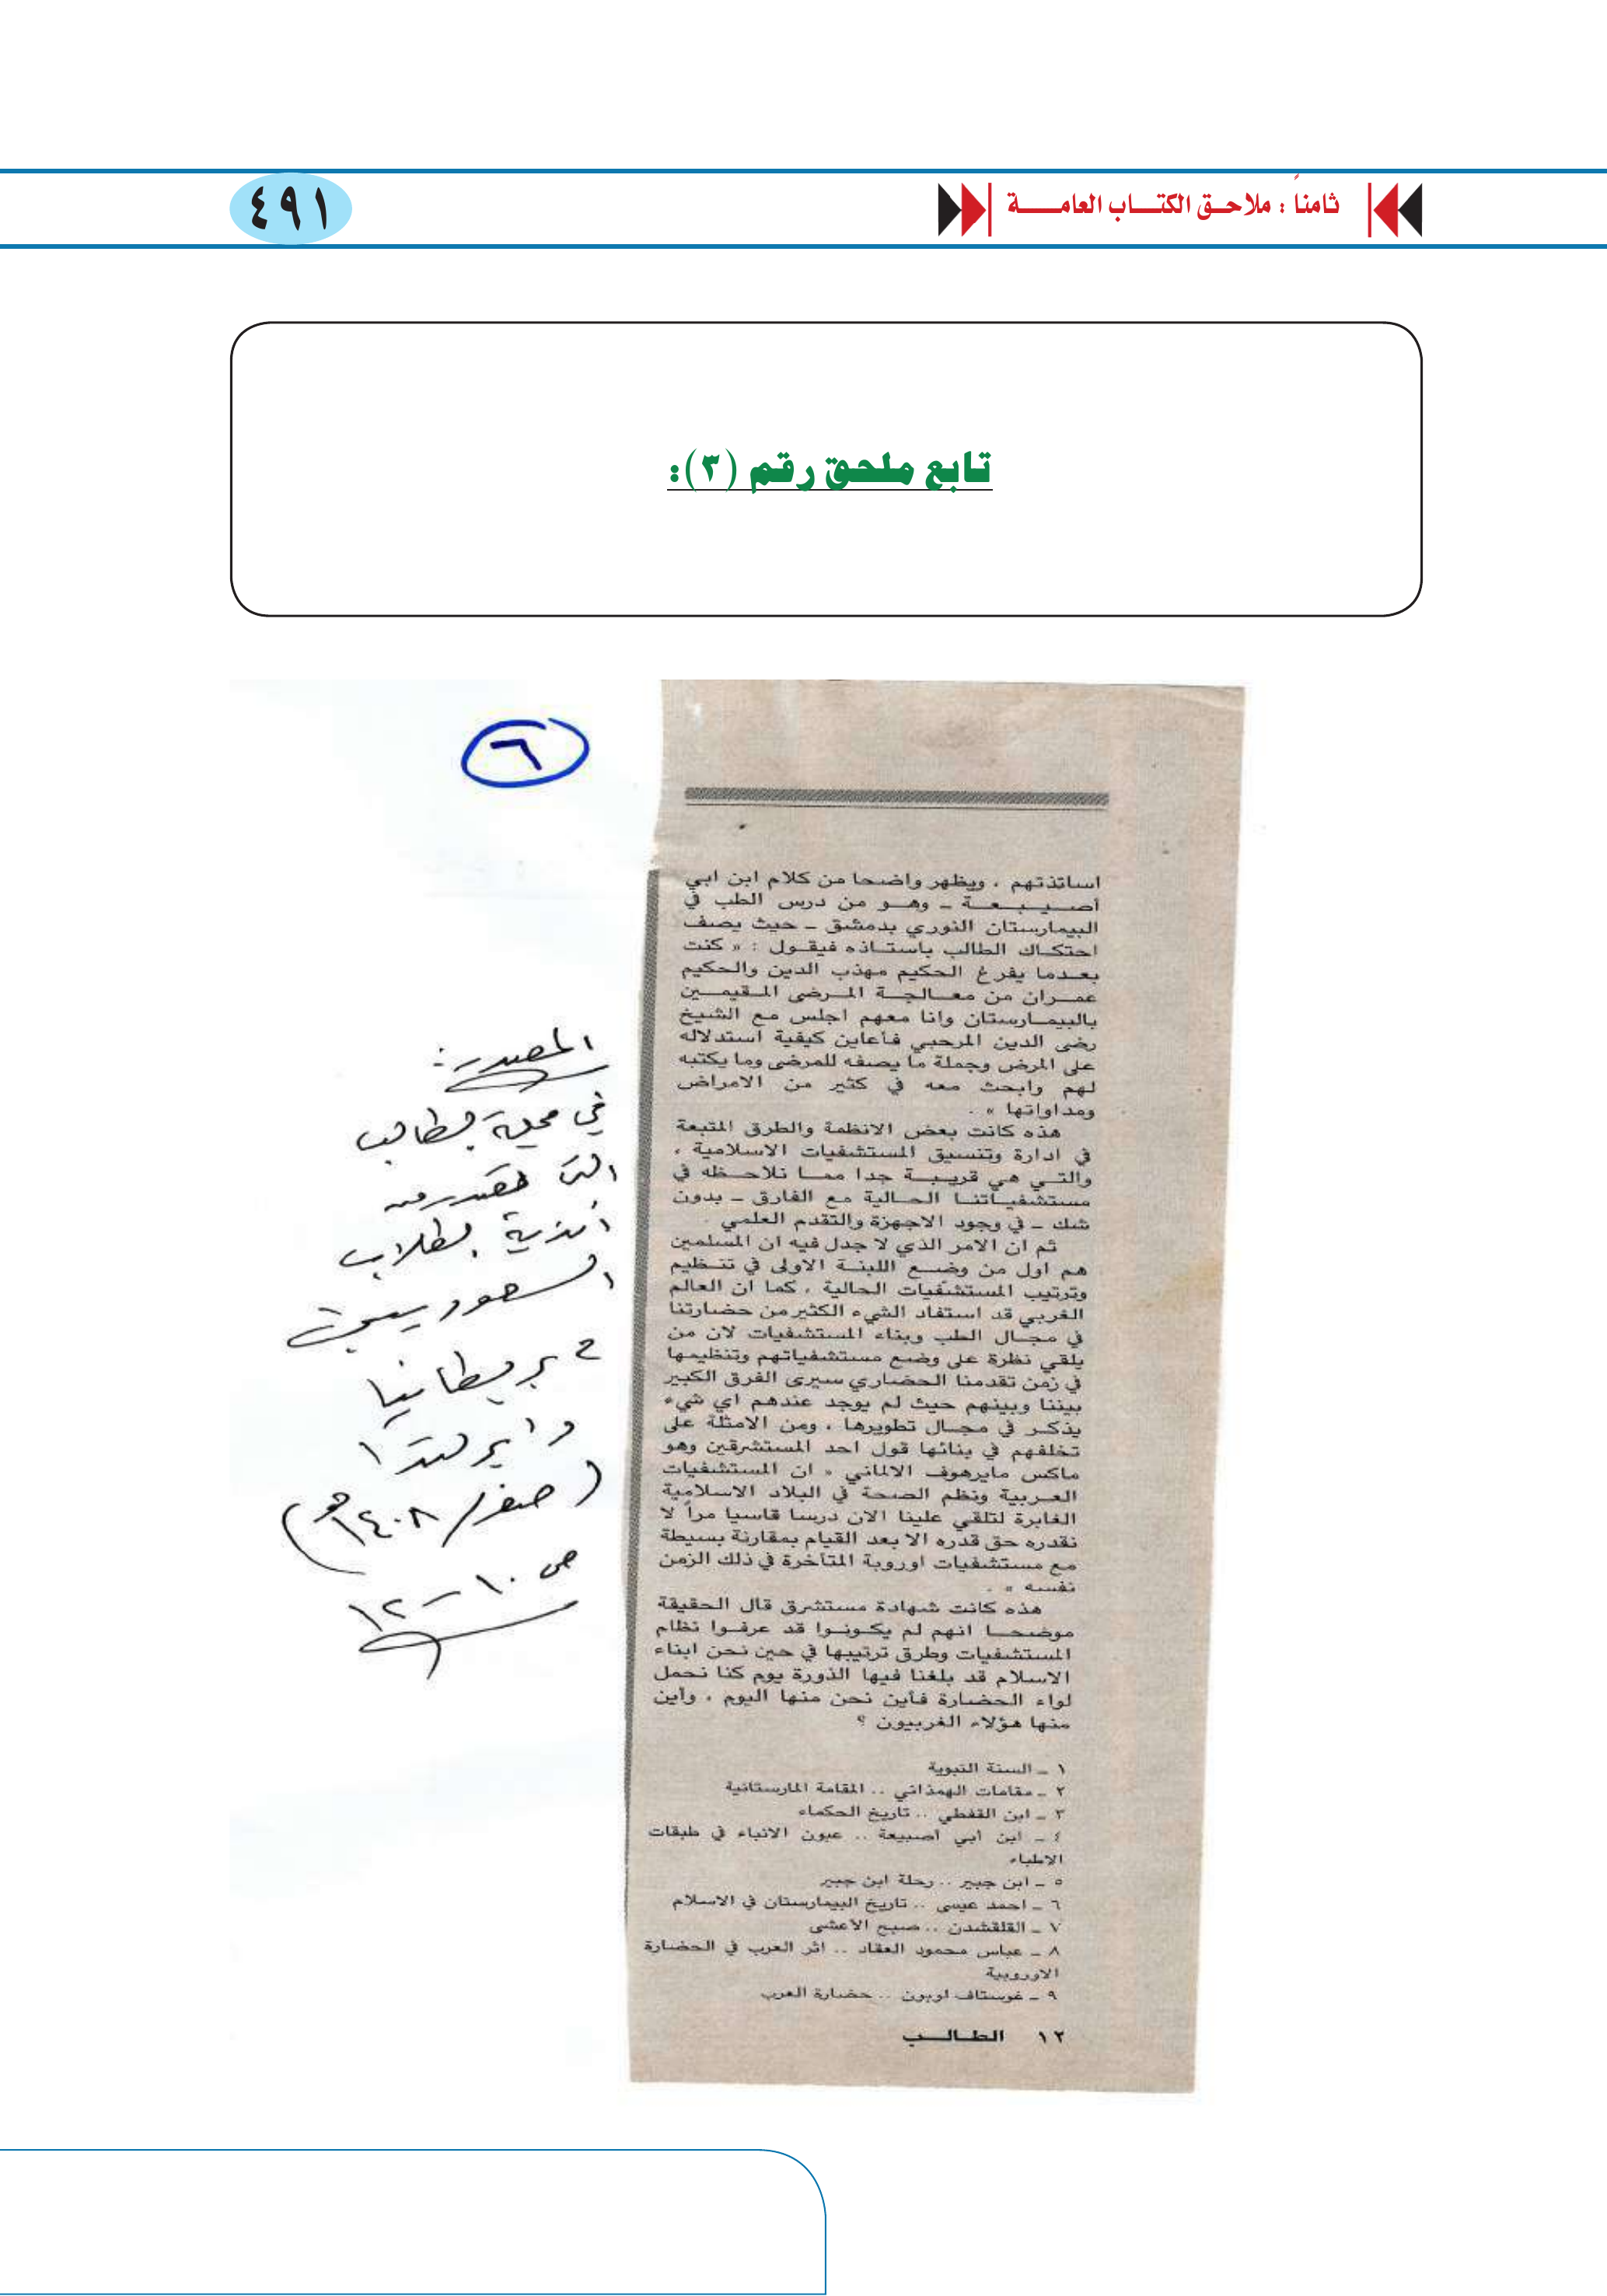 ثامناً : ملاحـق الكتـــاب العامـــــة
٤٩١
تابع ملحق رقم (٣):
٦
اساتذتهم ، ويظهر واضحا من كلام ابن ابي
أصـيـبـعـة ـ وهـو من درس الطب في
البيمارستان النوري بدمشق ـ حيث يصف
احتكـاك الطالب باستـاذه فيقـول : « كنت
بعـدما يفرغ الحكيم مهذب الدين والحكيم
عمـران من معـالجـة المـرضى المـقيمـين
بالبيمـارستان وانا معهم اجلس مع الشيخ
رضى الدين المرحبي فأعاين كيفية استدلاله
على المرض وجملة ما يصفه للمرضى وما يكتبه
لهم وابحث معه في كثير من الامراض
ومداواتها » .
هذه كانت بعض الانظمة والطرق المتبعة
في ادارة وتنسيق المستشفيات الاسلامية ،
والتـي هي قريبـة جدا ممـا نلاحـظه في
مستشفيـاتنـا الحـالية مع الفارق ـ بدون
شك ـ في وجود الاجهزة والتقدم العلمي .
ثم ان الامر الذي لا جدل فيه ان المسلمين
هم اول من وضـع اللبنـة الاولى في تنـظيم
وترتيب المستشفيات الحالية ، كما ان العالم
الغربي قد استفاد الشيء الكثير من حضارتنا
في مجـال الطب وبناء المستشفيات لان من
يلقي نظرة على وضع مستشفياتهم وتنظيمها
في زمن تقدمنا الحضاري سيرى الفرق الكبير
بيننا وبينهم حيث لم يوجد عندهم اي شيء
يذكـر في مجـال تطويرها ، ومن الامثلة على
تخلفهم في بنائها قول احد المستشرقين وهو
ماكس مايرهوف الالماني « ان المستشفيات
العـربية ونظم الصحة في البلاد الاسلامية
الغابرة لتلقي علينا الان درسا قاسيا مراً لا
نقدره حق قدره الا بعد القيام بمقارنة بسيطة
مع مستشفيات اوروبة المتأخرة في ذلك الزمن
نفسه » .
هذه كانت شهادة مستشرق قال الحقيقة
موضحـا انهم لم يكـونـوا قد عرفـوا نظام
المستشفيات وطرق ترتيبها في حين نحن ابناء
الاسلام قد بلغنا فيها الذورة يوم كنا نحمل
لواء الحضارة فأين نحن منها اليوم ، وأين
منها هؤلاء الغربيون ؟
١ ـ السنة النبوية
٢ ـ مقامات الهمذاني .. المقامة المارستانية
٣ ـ ابن القفطي .. تاريخ الحكماء
٤ ـ ابن أبي أصيبعة .. عيون الانباء في طبقات
الاطباء
٥ ـ ابن جبير .. رحلة ابن جبير
٦ ـ احمد عيسى .. تاريخ البيمارستان في الاسلام
٧ ـ القلقشدن .. صبح الاعشى
٨ ـ عباس محمود العقاد .. اثر العرب في الحضارة
الاوروبية
٩ ـ غوستاف لوبون .. حضارة العرب
١٢ الطـالـــب
المصدر :
في مجلة الطالب
التي تصدر من
أندية الطلاب
السعوديين
في بريطانيا
وايرلندا
(صفر/١٤٠٨هـ)
ص ١٠ – ١٢